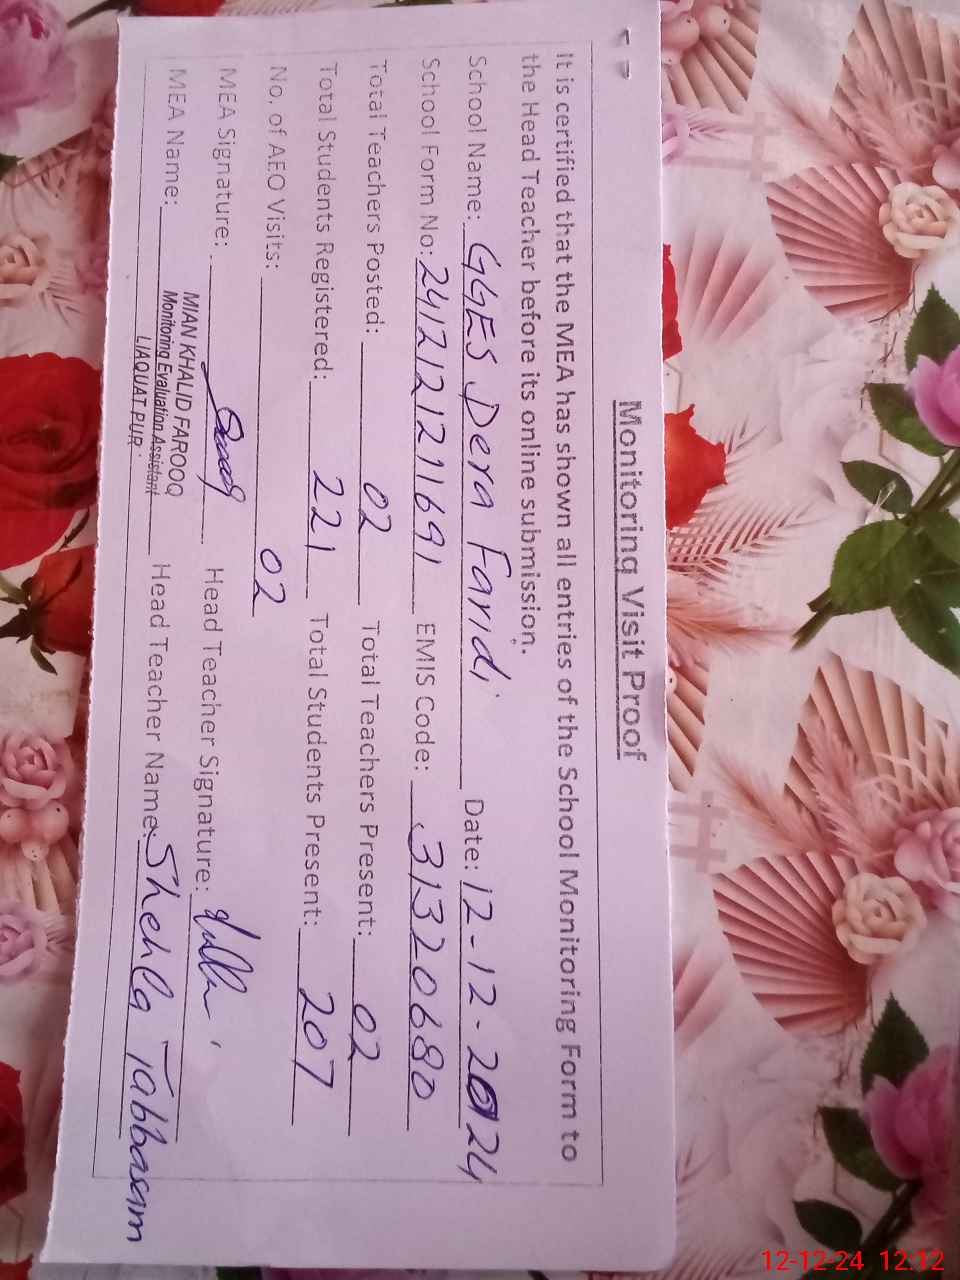 Monitoring Visit Proof
It is certified that the MEA has shown all entries of the School Monitoring Form to
the Head Teacher before its online submission.
School Name: GGES Dera Faridi Date: 12-12-2024
School Form No: 241212121691 EMIS Code: 31320680
Total Teachers Posted: 02 Total Teachers Present: 02
Total Students Registered: 221 Total Students Present: 207
No. of AEO Visits: 02
MEA Signature: Head Teacher Signature:
MEA Name: MIAN KHALID FAROOQ Head Teacher Name: Shehla Tabbasam
Monitoring Evaluation Assistant
LIAQUAT PUR
12-12-24 12:12